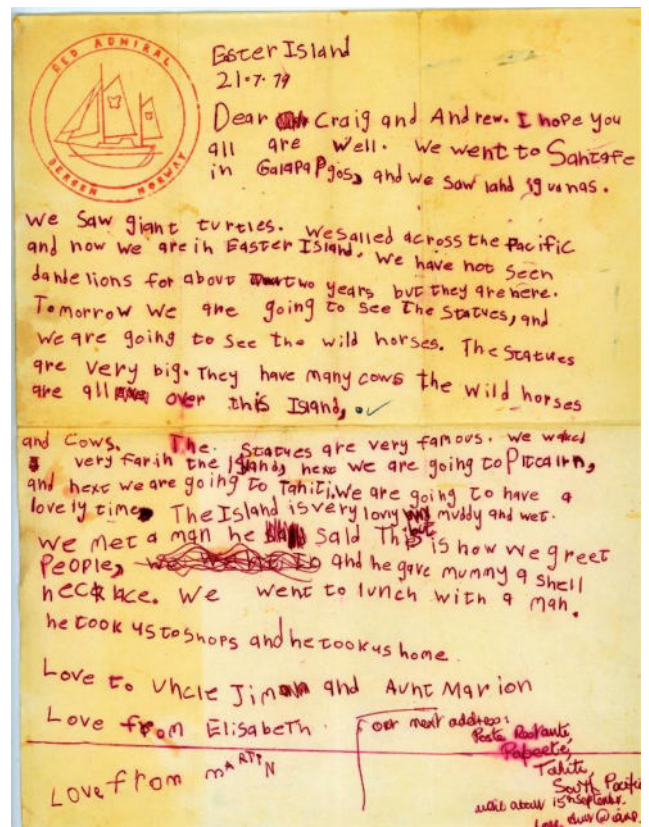 RED ADMIRAL
BERGEN NORWAY
Easter Island
21.7.79
Dear Craig and Andrew. I hope you
all are well. We went to Santafe
in GalapaPgos, and we saw land iguanas.
We Saw giant turtles. We sailed across the Pacific
and now we are in Easter Island. We have not seen
dandelions for about two years but they are here.
Tomorrow we are going to see the Statues, and
we are going to see the wild horses. The Statues
are very big. They have many cows the wild horses
are all over this Island,
and Cows. The Statues are very famous. we walked
very far in the Island, next we are going to Pitcairn,
and next we are going to Tahiti. We are going to have a
lovely time. The Island is very muddy and wet.
We met a man he said This is how we greet
People, and he gave mummy a shell
necklace. We went to lunch with a man.
he took us to shops and he took us home.
Love to Uncle Jim and Aunt Marion
Love from Elisabeth. our next address:
Poste Restante,
Papeete,
Love from MARTIN
Tahiti,
South Pacific
until about 15th September.